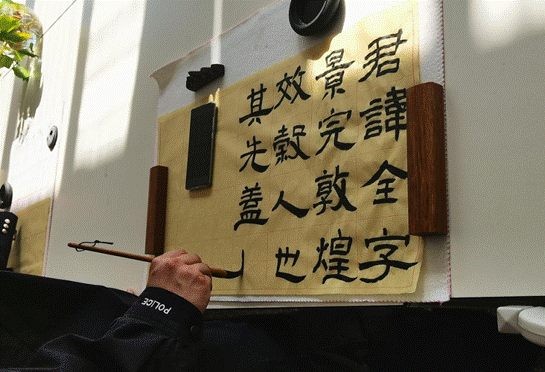 君諱全字
景完敦煌
效穀人也
其先盖
POLICE